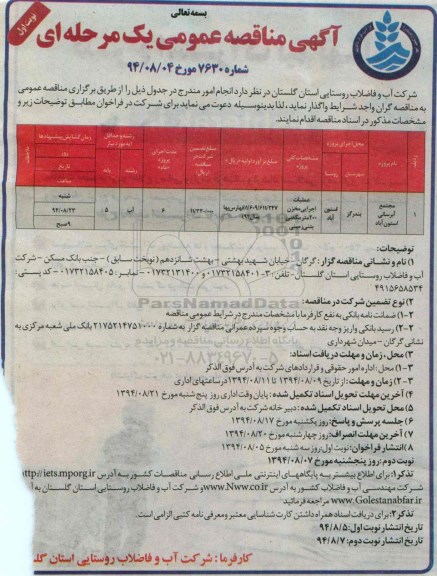 بسمه تعالی
نوبت اول
آگهی مناقصه عمومی یک مرحله ای
شماره ۷۶۳۰ مورخ ۹۴/۰۸/۰۴
شرکت آب و فاضلاب روستایی استان گلستان در نظر دارد انجام امور مندرج در جدول ذیل را از طریق برگزاری مناقصه عمومی
به مناقصه گران واجد شرایط واگذار نماید، لذا بدینوسیله دعوت می نماید برای شرکت در فراخوان مطابق توضیحات زیر و
مشخصات مذکور در اسناد مناقصه اقدام نمایند.
نام پروژه
محل اجرای پروژه
شهرستان
روستا
مشخصات کلی پروژه
مبلغ برآورد اولیه (ریال)
مبلغ تضمین شرکت در مناقصه (ریال)
مدت اجرای پروژه (ماه)
رشته
پایه
روز
تاریخ
ساعت
۱
مجتمع آبرسانی استون آباد
بندرگز
استون آباد
عملیات اجرایی مخزن ۲۰۰ مترمکعبی بتنی زمینی
۶
آب
۵
شنبه
۹۴/۰۸/۲۳
۹ صبح
توضیحات:
۱) نام و نشانی مناقصه گزار: گرگان - خیابان شهید بهشتی - بهشت شانزدهم (نوبخت سابق) - جنب بانک مسکن - شرکت
آب و فاضلاب روستایی استان گلستان - تلفن: ۳-۰۱۷۳۲۱۵۸۴۰۱ و ۰۱۷۳۲۱۳۱۴۰۲ - نمابر: ۰۱۷۳۲۱۵۸۴۰۵ - کد پستی:
۴۹۱۵۶۵۸۵۳۴
۲) نوع تضمین شرکت در مناقصه:
۱-۲) ضمانت نامه بانکی به نفع کارفرما با مشخصات مندرج در شرایط عمومی مناقصه
۲-۲) رسید بانکی واریز وجه نقد به حساب وجوه سپرده عمرانی مناقصه گزار به شماره ۲۱۷۵۲۱۴۷۵۱۰۰۰ بانک ملی شعبه مرکزی به
نشانی گرگان - میدان شهرداری
ParsNamadData
پایگاه اطلاع رسانی مناقصه و مزایده
۰۲۱-۸۸۳۴۹۶۷۰-۵
۳) محل، زمان و مهلت دریافت اسناد:
۱-۳) محل: اداره امور حقوقی و قراردادهای شرکت به آدرس فوق الذکر
۲-۳) زمان و مهلت: از تاریخ ۱۳۹۴/۰۸/۰۹ تا ۱۳۹۴/۰۸/۱۱ در ساعتهای اداری
۴) آخرین مهلت تحویل اسناد تکمیل شده: پایان وقت اداری روز پنج شنبه مورخ ۱۳۹۴/۰۸/۲۱
۵) محل تحویل اسناد تکمیل شده: دبیرخانه شرکت به آدرس فوق الذکر
۶) جلسه پرسش و پاسخ: روز یکشنبه مورخ ۱۳۹۴/۰۸/۱۷
۷) آخرین مهلت انصراف: روز چهارشنبه مورخ ۱۳۹۴/۰۸/۲۰
۸) انتشار فراخوان: نوبت اول روز سه شنبه مورخ ۱۳۹۴/۰۸/۰۵
نوبت دوم: روز پنجشنبه مورخ ۱۳۹۴/۰۸/۰۷
تذکر۱: برای اطلاع بیشتر به پایگاههای اینترنتی ملی اطلاع رسانی مناقصات کشور به آدرس http://iets.mporg.ir
شرکت مهندسی آب و فاضلاب کشور به آدرس www.Nww.co.ir و شرکت آب و فاضلاب روستایی استان گلستان به آدرس
www.Golestanabfar.ir مراجعه فرمائید
تذکر۲: برای دریافت اسناد همراه داشتن کارت شناسایی معتبر و معرفی نامه کتبی الزامی است.
تاریخ انتشار نوبت اول: ۹۴/۸/۵
تاریخ انتشار نوبت دوم: ۹۴/۸/۷
کارفرما: شرکت آب و فاضلاب روستایی استان